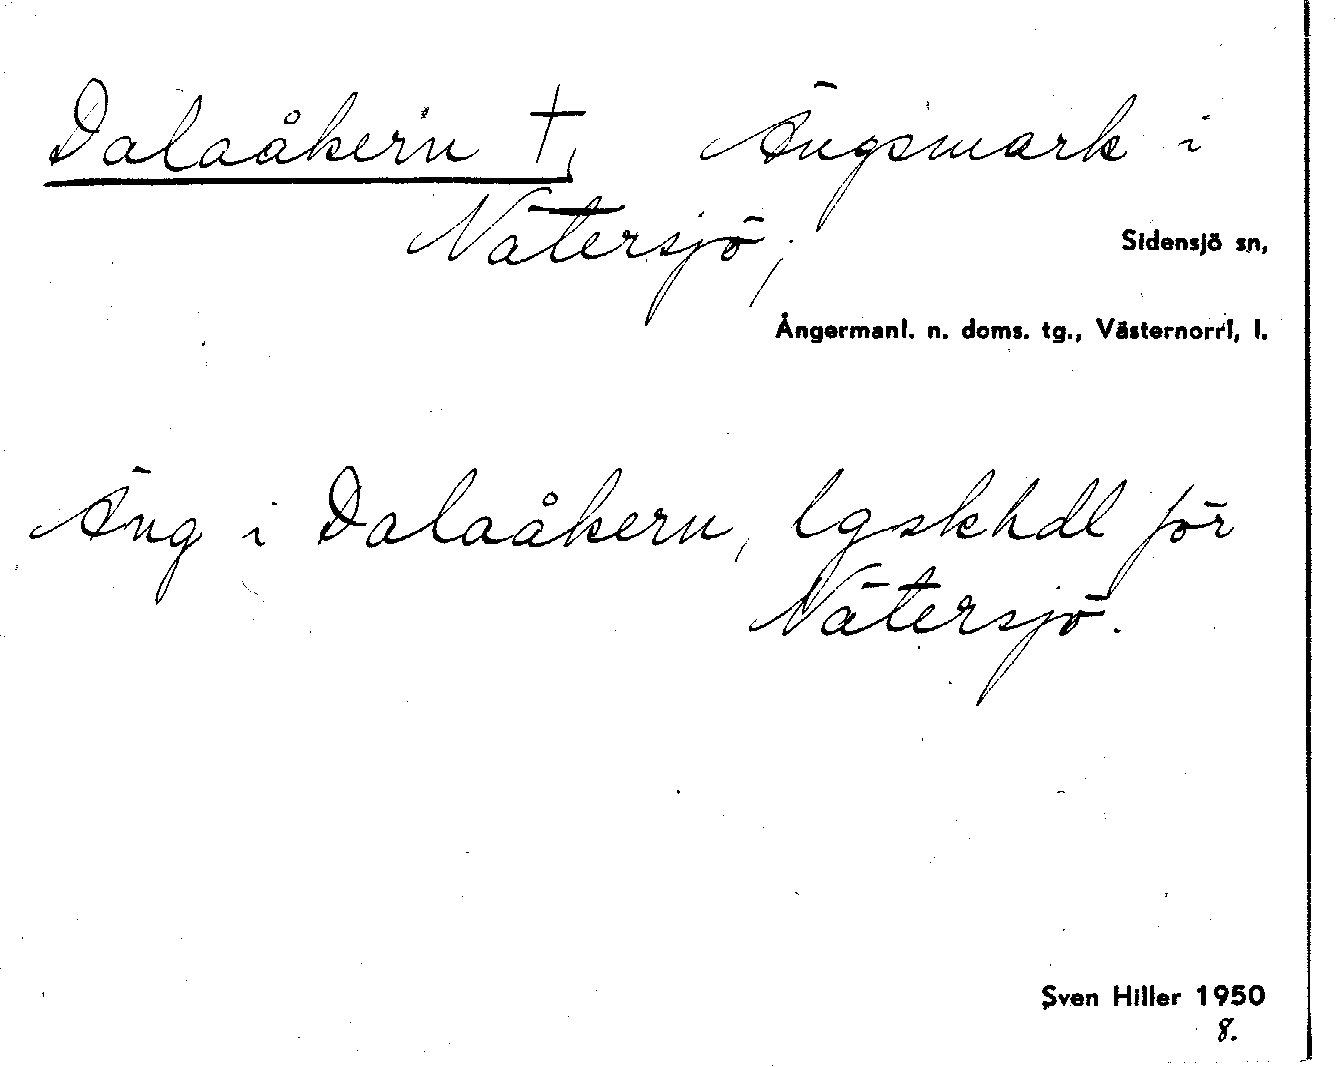 Dalaåkern †, Ängsmark i
Nätersjö,
Sidensjö sn,
Ångermanl. n. doms. tg., Västernorrl. l.
Äng i Dalaåkern, lgskhdl för
Nätersjö.
Sven Hiller 1950
8.